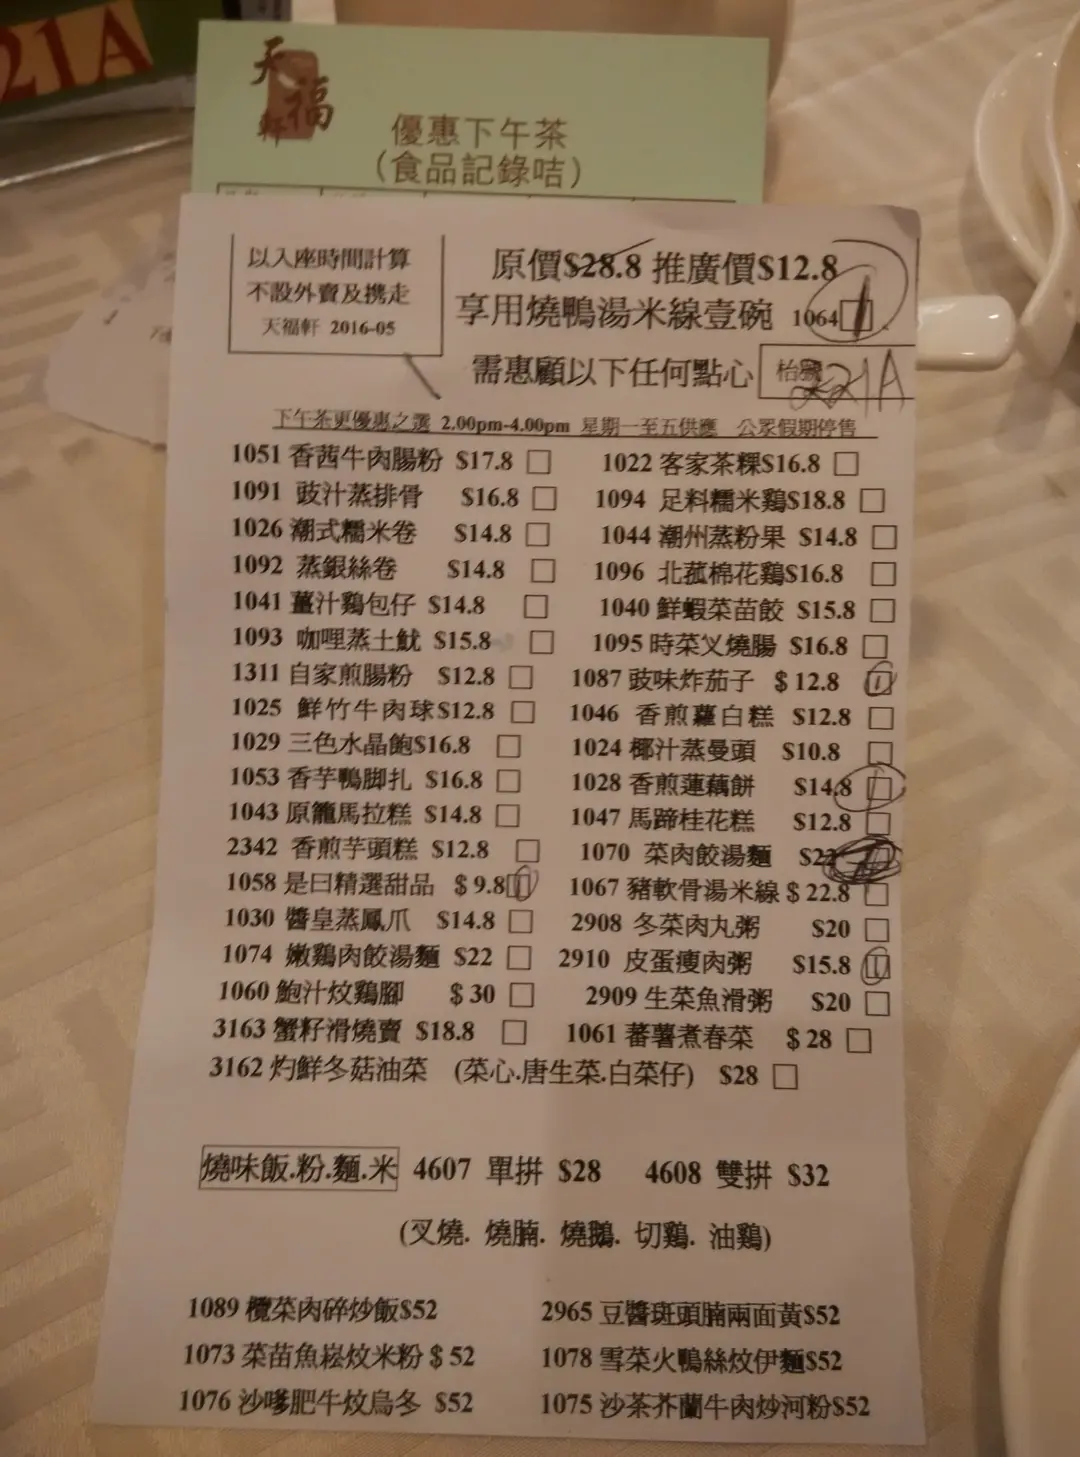 21A
天福軒
優惠下午茶
(食品記錄咭)
以入座時間計算
不設外賣及携走
天福軒 2016-05
原價$28.8 推廣價$12.8
享用燒鴨湯米線壹碗 1064
需惠顧以下任何點心
枱號 221A
下午茶更優惠之選 2.00pm-4.00pm 星期一至五供應 公眾假期停售
1051 香茜牛肉腸粉 $17.8 □ 1022 客家茶粿$16.8 □
1091 豉汁蒸排骨 $16.8 □ 1094 足料糯米鷄$18.8 □
1026 潮式糯米卷 $14.8 □ 1044 潮州蒸粉果 $14.8 □
1092 蒸銀絲卷 $14.8 □ 1096 北菰棉花鷄$16.8 □
1041 薑汁鷄包仔 $14.8 □ 1040 鮮蝦菜苗餃 $15.8 □
1093 咖喱蒸土魷 $15.8 □ 1095 時菜叉燒腸 $16.8 □
1311 自家煎腸粉 $12.8 □ 1087 豉味炸茄子 $ 12.8 □
1025 鮮竹牛肉球$12.8 □ 1046 香煎蘿白糕 $12.8 □
1029 三色水晶飽$16.8 □ 1024 椰汁蒸曼頭 $10.8 □
1053 香芋鴨脚扎 $16.8 □ 1028 香煎蓮藕餅 $14.8 □
1043 原籠馬拉糕 $14.8 □ 1047 馬蹄桂花糕 $12.8 □
2342 香煎芋頭糕 $12.8 □ 1070 菜肉餃湯麵
1058 是曰精選甜品 $ 9.8 □ 1067 豬軟骨湯米線 $ 22.8 □
1030 醬皇蒸鳳爪 $14.8 □ 2908 冬菜肉丸粥 $20 □
1074 嫩鷄肉餃湯麵 $22 □ 2910 皮蛋瘦肉粥 $15.8 □
1060 鮑汁炆鷄腳 $ 30 □ 2909 生菜魚滑粥 $20 □
3163 蟹籽滑燒賣 $18.8 □ 1061 蕃薯煮春菜 $ 28 □
3162 灼鮮冬菇油菜 (菜心.唐生菜.白菜仔) $28 □
燒味飯.粉.麵.米 4607 單拚 $28 4608 雙拚 $32
(叉燒. 燒腩. 燒鵝. 切鷄. 油鷄)
1089 欖菜肉碎炒飯$52 2965 豆醬斑頭腩兩面黃$52
1073 菜苗魚崧炆米粉 $ 52 1078 雪菜火鴨絲炆伊麵$52
1076 沙嗲肥牛炆烏冬 $52 1075 沙茶芥蘭牛肉炒河粉$52